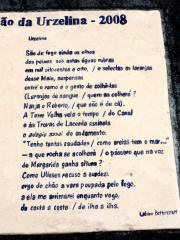 ão da Urzelina - 2008
Urzelina
São de fogo ainda os olhos
dos peixes sob estas águas rubras
em mil oitocentos e oito, / e selectas as laranjas
desse Maio, suspensas
entre o ramo e o gesto de colhê-las
(Laranjas de sangue / quem as colherá?
Nanja o Roberto, / que não é de cá).
A Torre Velha vela o tempo / do Canal
e às Treze da Laconta assinala
o adágio do andamento:
"Tenho tantas saudades / como areias tem o mar..."
- a que rocha se acolherá / o pássaro que na voz
de Margarida ganha altura?
Como Ulisses recuso a surdez:
ergo do chão a vara poupada pelo fogo,
a ela me amarrarei enquanto vogo,
de costa a costa / de ilha a ilha.
Bettencourt